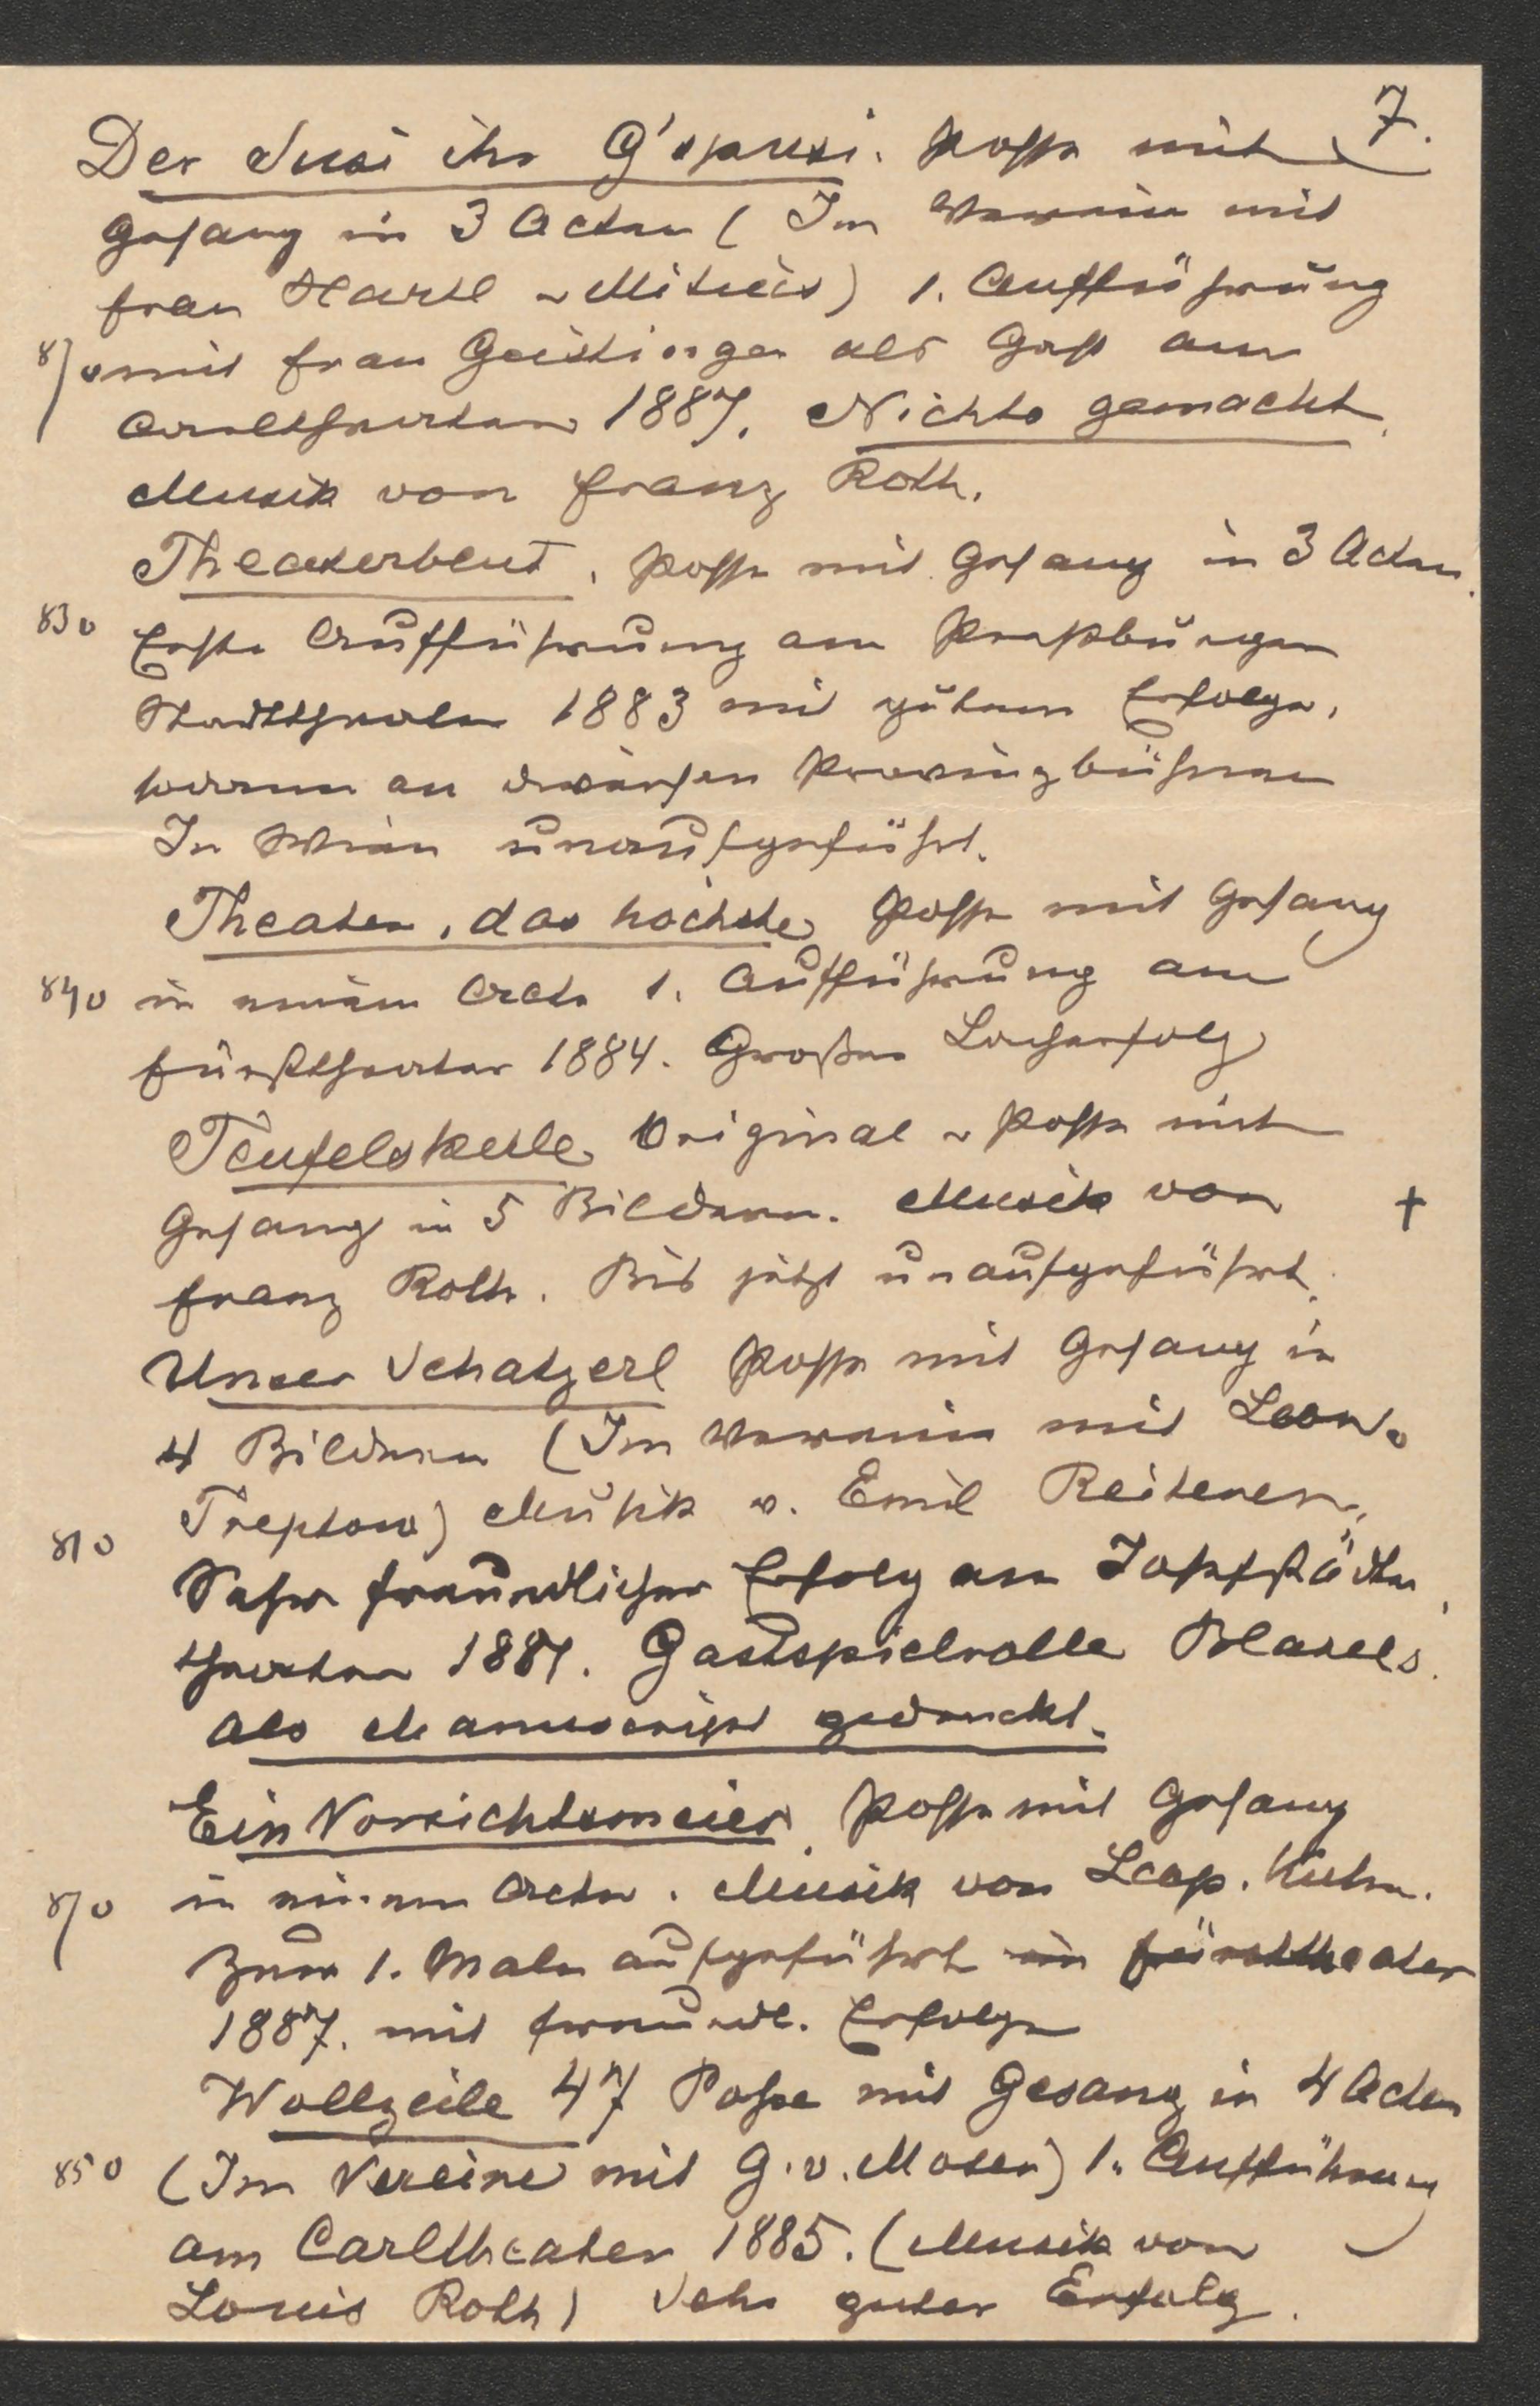 7.
Der Susi ihr G'spusi. Posse mit
Gesang in 3 Acten (Im Verein mit
Frau Hartl-Mitius) 1. Aufführung
870 mit Frau Geistinger als Gast am
Carltheater 1887. Nichts gemacht.
Musik von Franz Roth.
Theaterblut. Posse mit Gesang in 3 Acten.
830 Erste Aufführung am Preßburger
Stadttheater 1883 mit gutem Erfolge,
sodann an diversen Provinzbühnen
In Wien unaufgeführt.
Theater, das höchste Posse mit Gesang
840 in einem Acte 1. Aufführung am
Fürsttheater 1884. Großer Lacherfolg
Teufelskerle Original-Posse mit
Gesang in 5 Bildern. Musik von †
Franz Roth. Bis jetzt unaufgeführt.
Unser Schatzerl Posse mit Gesang in
4 Bildern (Im Verein mit Leon
Treptow) Musik v. Emil Reiterer.
810 Sehr freundlicher Erfolg am Josefstädter
theater 1881. Gastspielrolle Blasels.
Als Manuscript gedruckt.
Ein Vorsichtsmeier. Posse mit Gesang
870 in einem Acte. Musik von Leop. Kuhn.
Zum 1. Male aufgeführt im Fürsttheater
1887. mit freundl. Erfolge
Wollzeile 47 Posse mit Gesang in 4 Acten
850 (Im Vereine mit G. v. Moser) 1. Aufführung
am Carltheater 1885. (Musik von
Louis Roth) Sehr guter Erfolg.